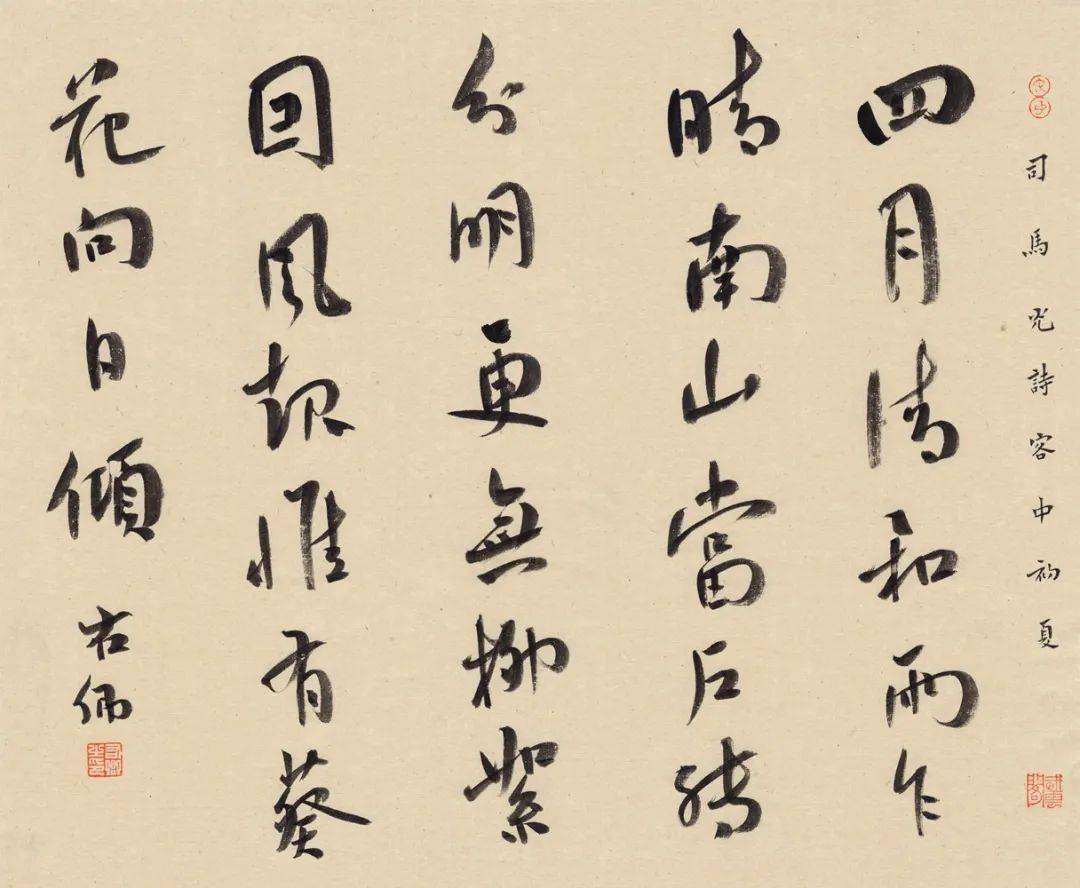 司馬光詩客中初夏
四月清和雨乍
晴南山當戶轉
分明更無柳絮
因風起惟有葵
花向日傾